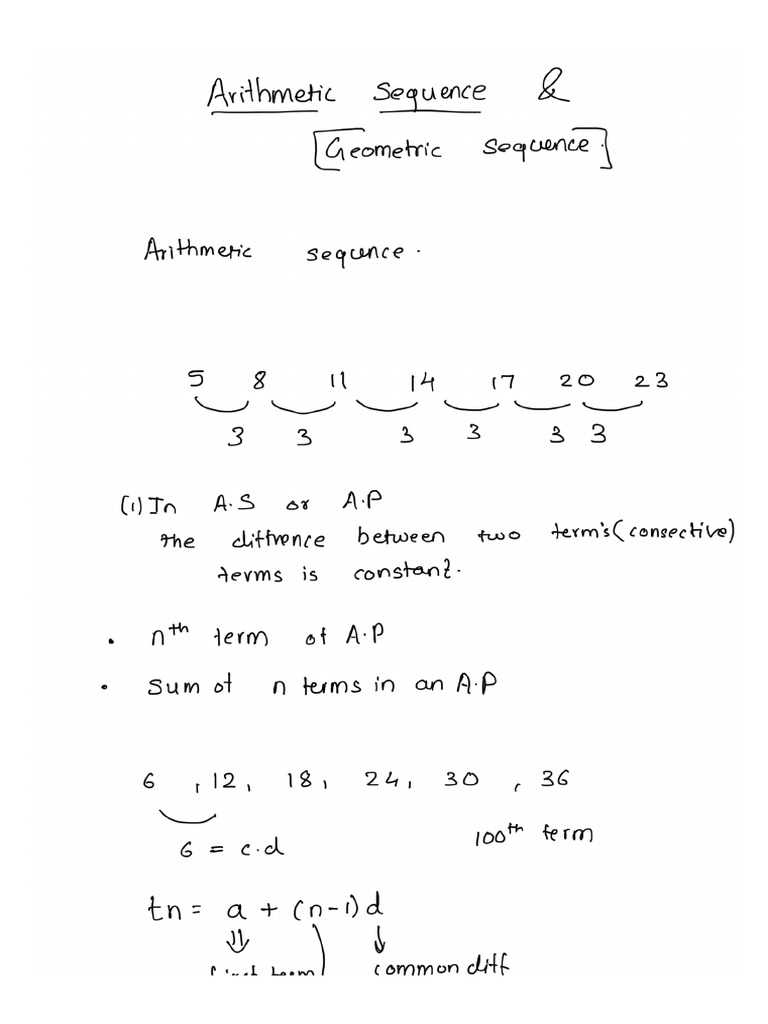 Arithmetic Sequence &
Geometric Sequence.
Arithmetic sequnce.
5 8 11 14 17 20 23
3 3 3 3 3 3
(1) In A.S or A.P
The diffrence between two term's (consective)
terms is constant.
• nth term of A.P
• Sum of n terms in an A.P
6 , 12, 18, 24, 30 , 36
6 = c.d 100th term
tn = a + (n-1)d
common diff